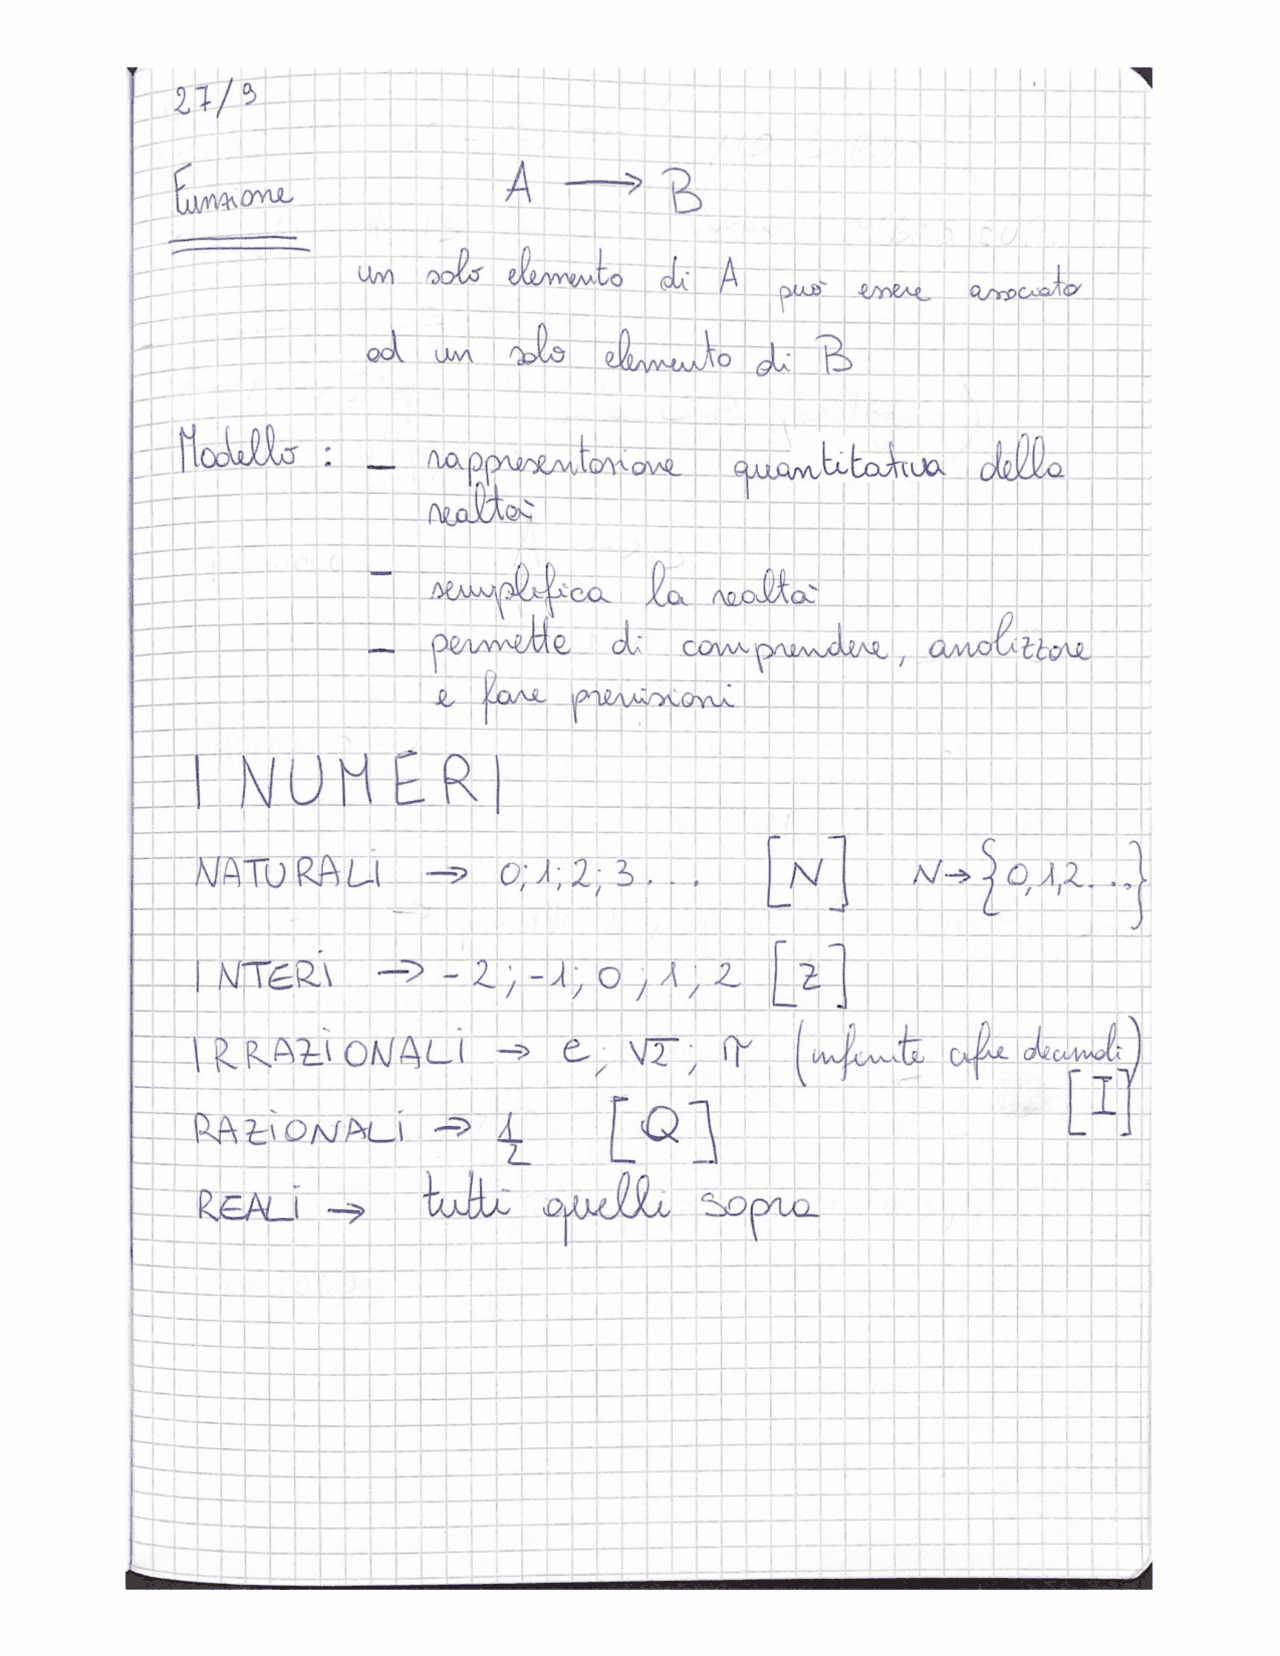 27/9
Funzione A → B
un solo elemento di A può essere associato
ad un solo elemento di B
Modello : - rappresentazione quantitativa della
realtà
- semplifica la realtà
- permette di comprendere, analizzare
e fare previsioni
I NUMERI
NATURALI → 0; 1; 2; 3... [N] N → {0,1,2...}
INTERI → -2; -1; 0; 1; 2 [Z]
IRRAZIONALI → e; √2; π (infinite cifre decimali)
[I]
RAZIONALI → 1/2 [Q]
REALI → tutti quelli sopra